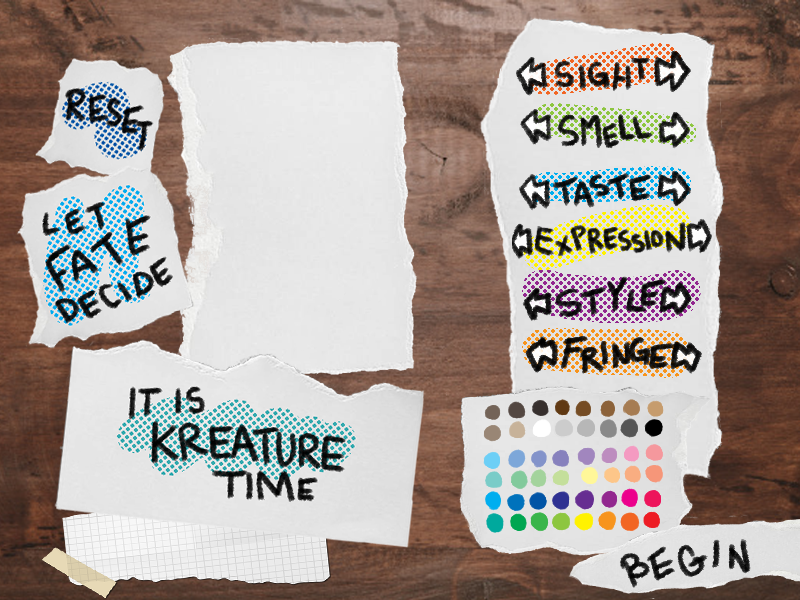 RESET
LET
FATE
DECIDE
IT IS
KREATURE
TIME
SIGHT
SMELL
TASTE
EXPRESSION
STYLE
FRINGE
BEGIN